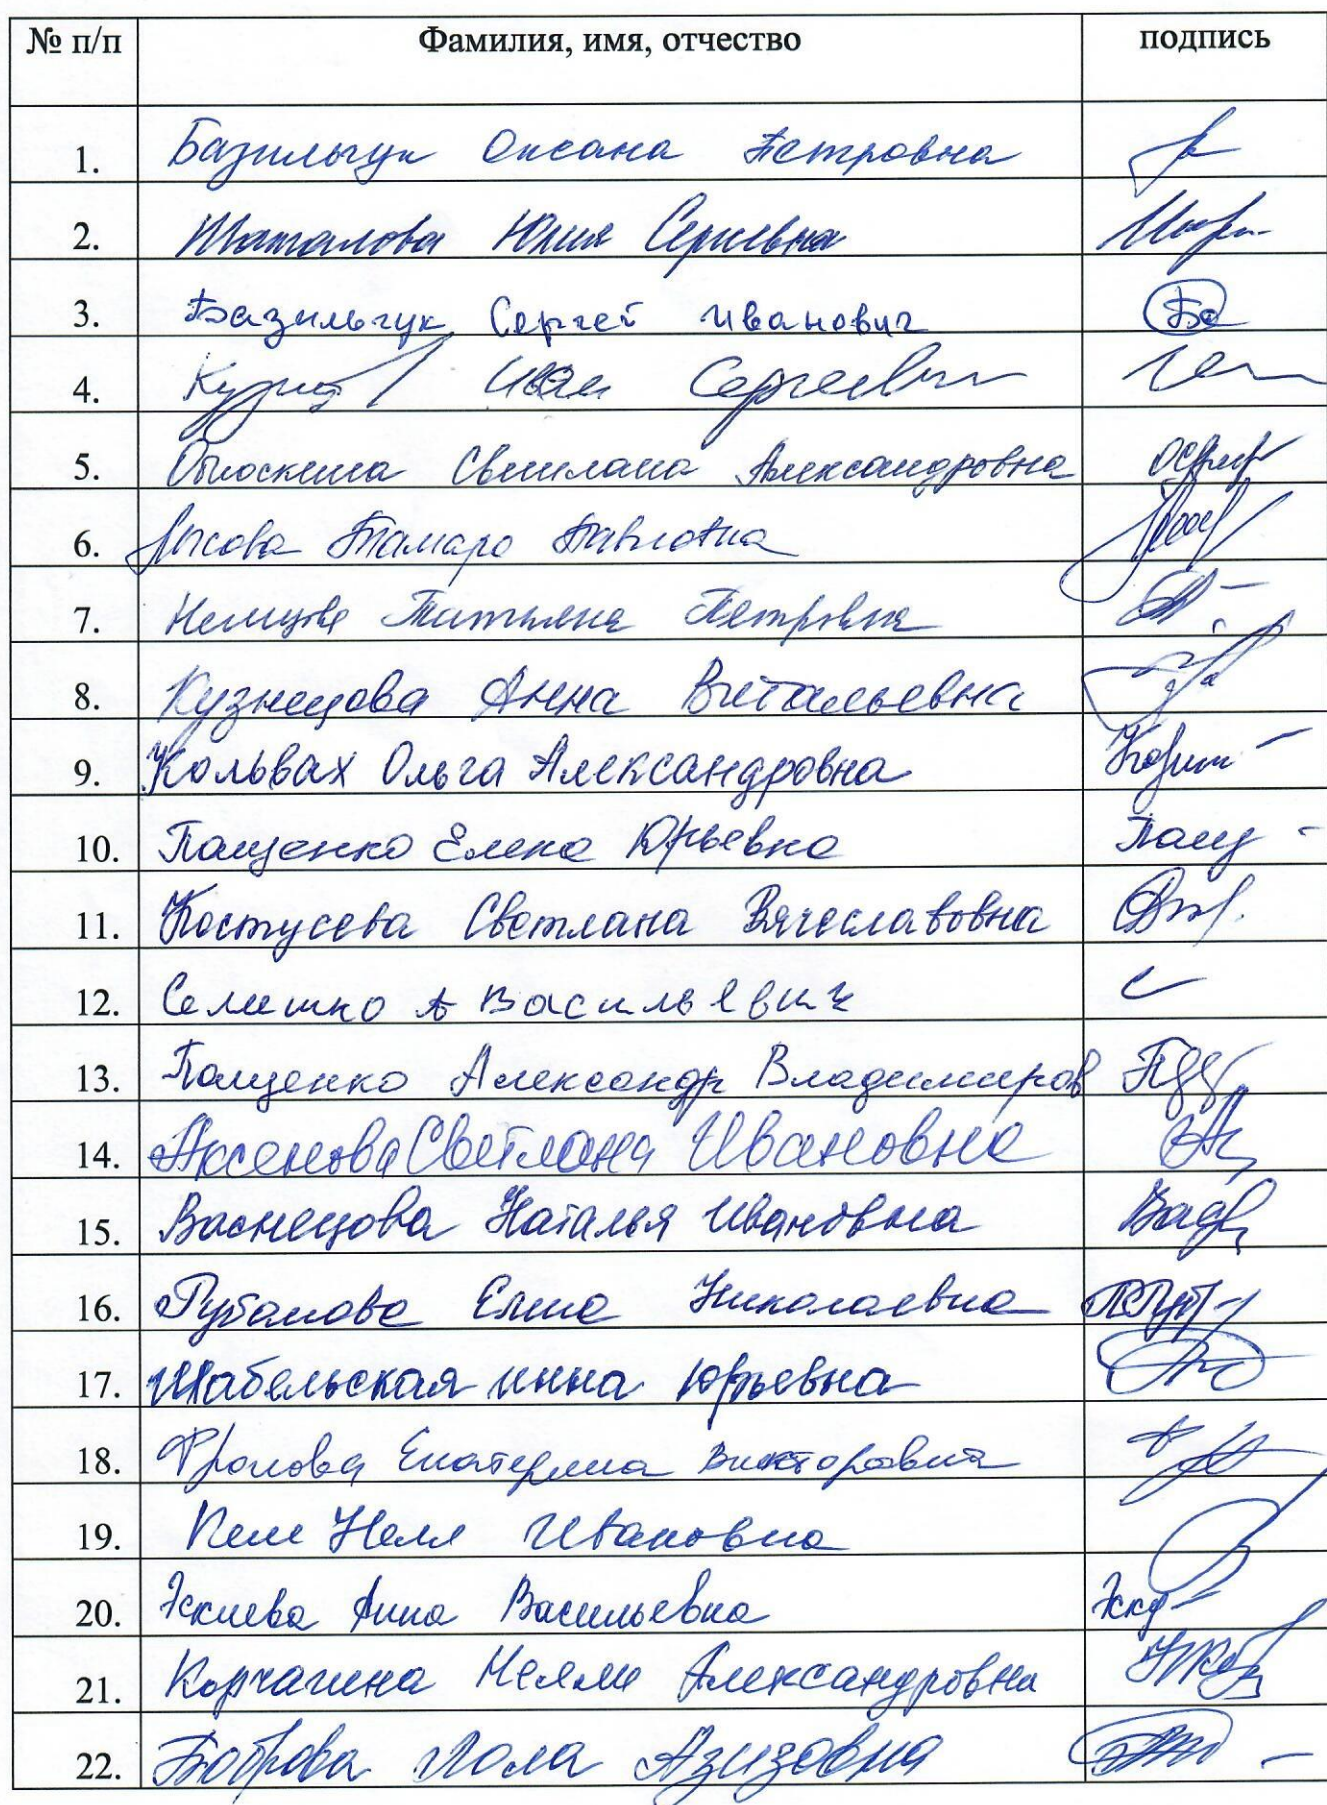 № п/п Фамилия, имя, отчество подпись
1. Базильчук Оксана Петровна
2. Шаталова Юлия Сергеевна
3. Базильчук Сергей Иванович Ба
4. Иван Сергеевич
5. Светлана Александровна
6. Лысова Тамара Павловна
7. Немцова Татьяна Петровна
8. Кузнецова Анна Витальевна
9. Кольвах Ольга Александровна
10. Пащенко Елена Юрьевна Пащ
11. Костусева Светлана Вячеславовна
12. Семешко А Васильевич
13. Пащенко Александр Владимиров
14. Аксенова Светлана Ивановна
15. Васнецова Наталья Ивановна
16. Елена Николаевна
17. Шабельская инна Юрьевна
18. Фролова Екатерина Викторовна
19. Нелл Ивановна
20. Анна Васильевна
21. Корчагина Нелли Александровна
22. Боброва Лола Азизовна